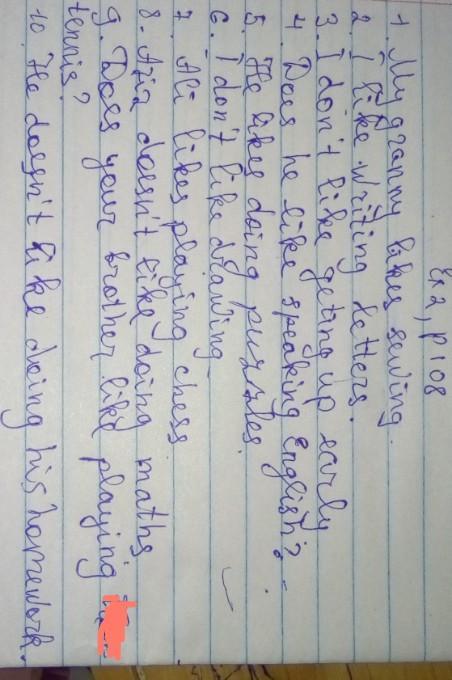 Ex 2, p 108
1. My granny likes sewing.
2. I like writing letters.
3. I don't like geting up early
4. Does he like speaking English?
5. He likes doing puzzles.
6. I don't like drawing
7. Ali likes playing chess
8. Aziz doesn't like doing maths
9. Does your brother like playing
tennis?
10. He doesn't like doing his homework.